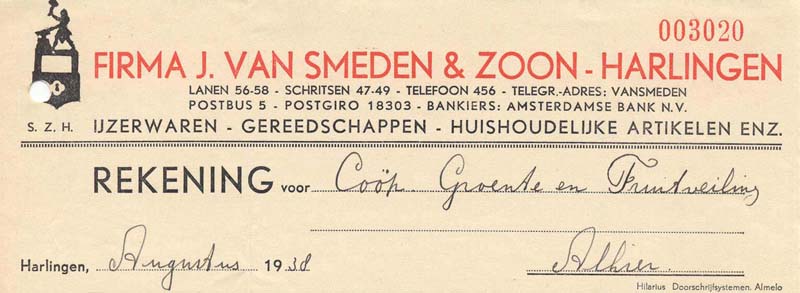 003020
FIRMA J. VAN SMEDEN & ZOON - HARLINGEN
LANEN 56-58 - SCHRITSEN 47-49 - TELEFOON 456 - TELEGR.-ADRES: VANSMEDEN
POSTBUS 5 - POSTGIRO 18303 - BANKIERS: AMSTERDAMSE BANK N.V.
S. Z. H. IJZERWAREN - GEREEDSCHAPPEN - HUISHOUDELIJKE ARTIKELEN ENZ.
REKENING voor Coöp. Groente en Fruitveiling
Harlingen, Augustus 1938 Alhier.
Hilarius Doorschrijfsystemen. Almelo